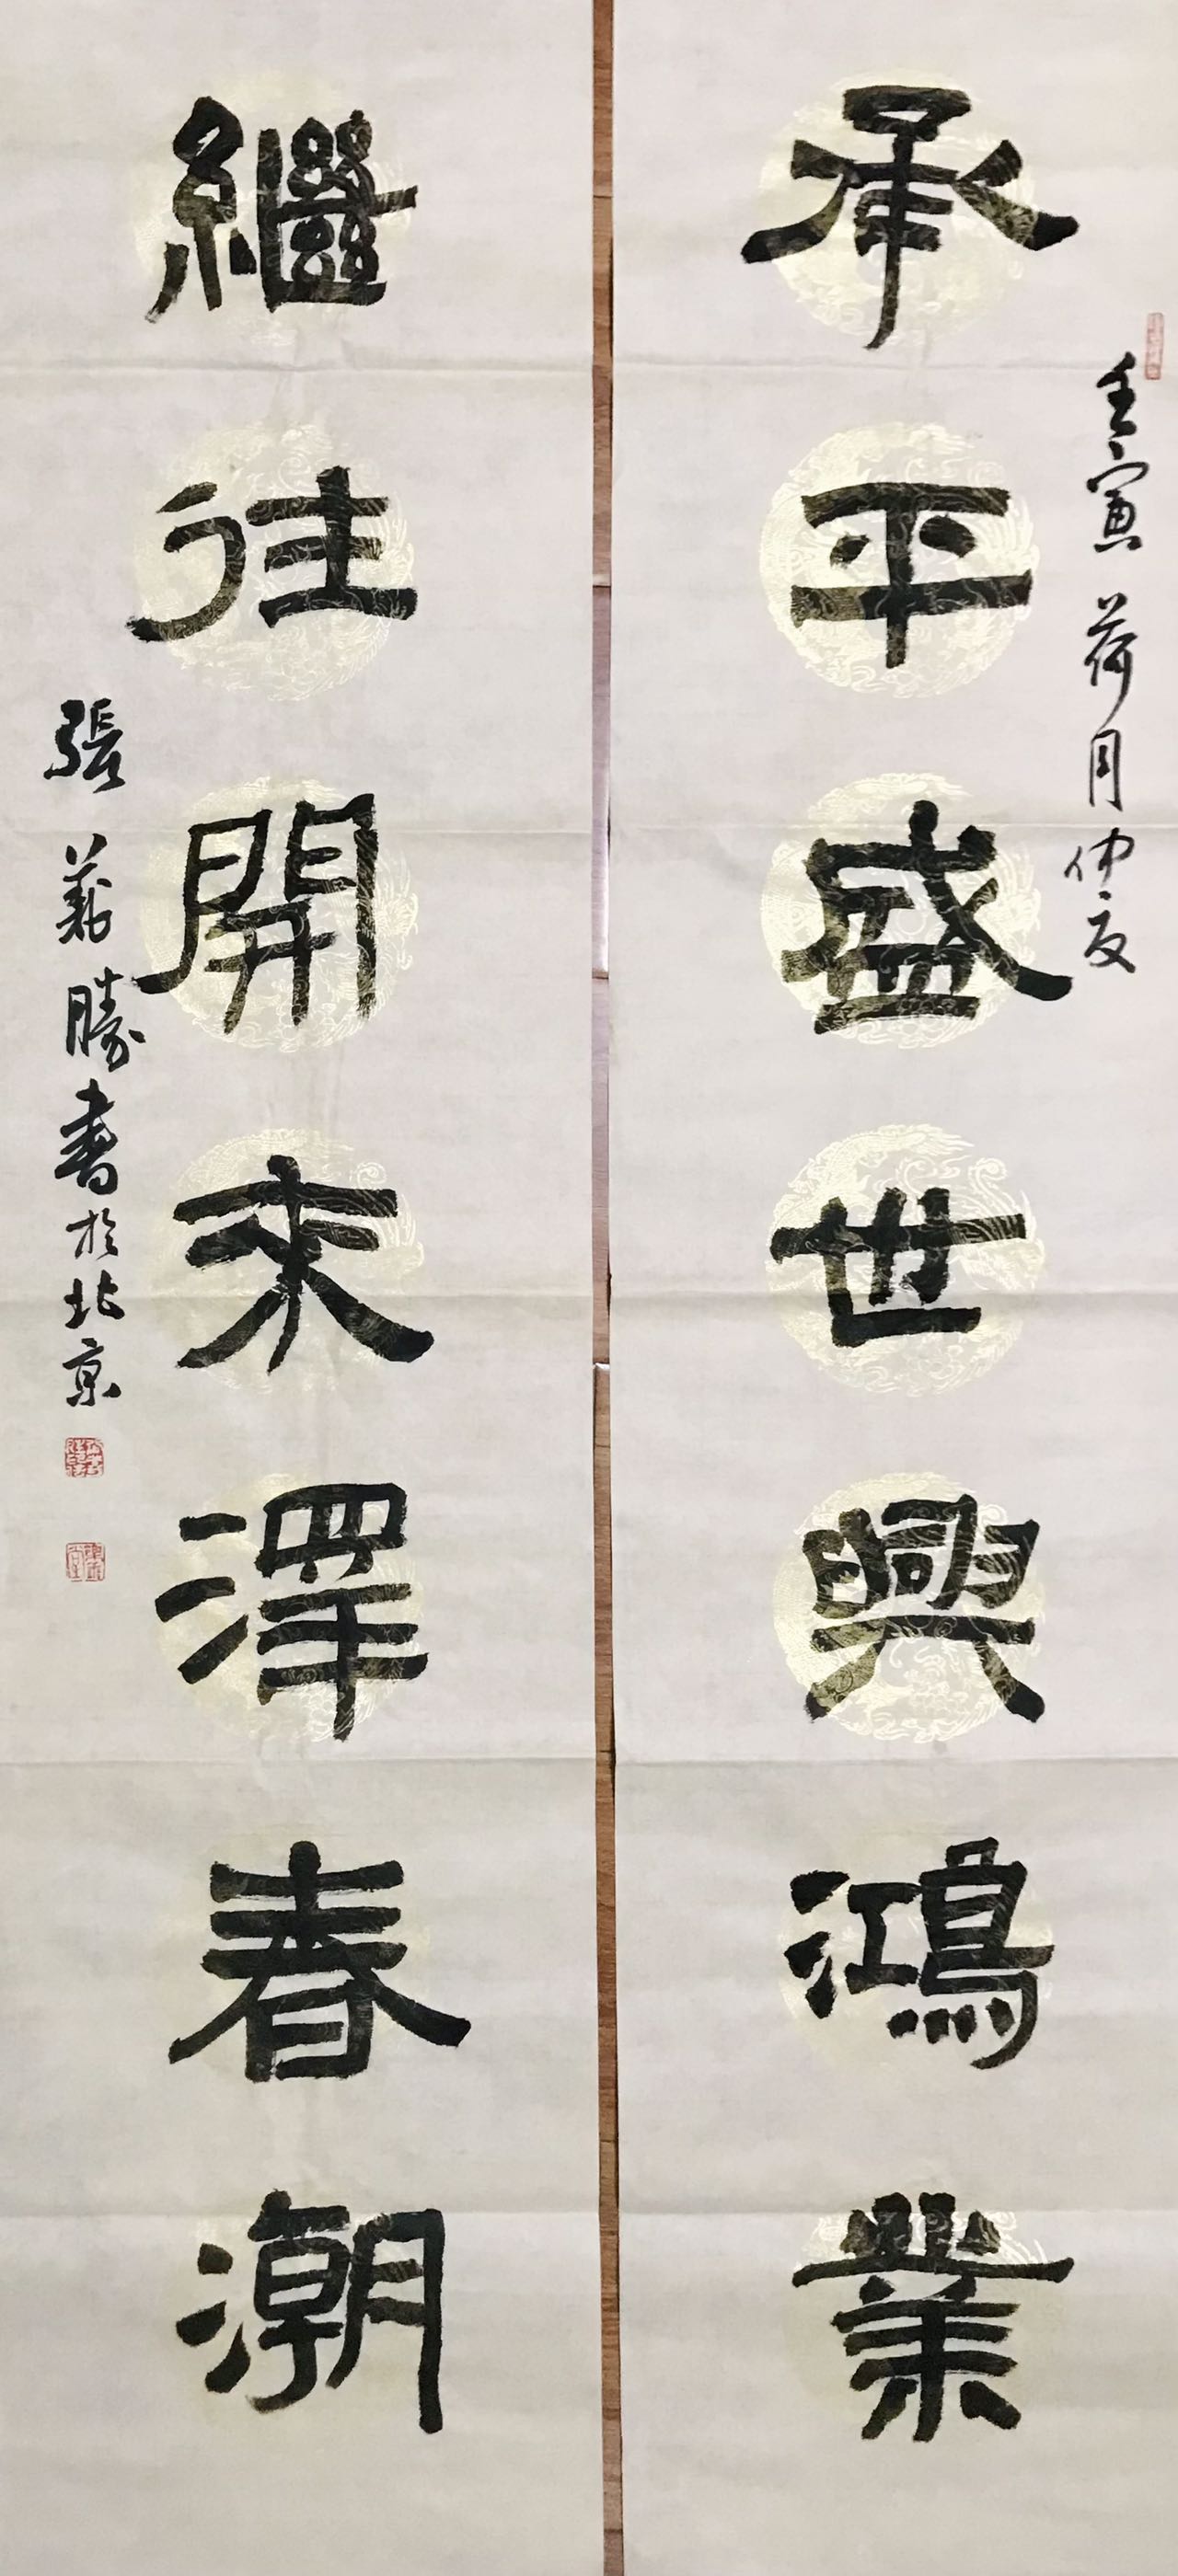 承平盛世興鴻業
壬寅荷月仲夏
繼往開来澤春潮
張義勝書於北京